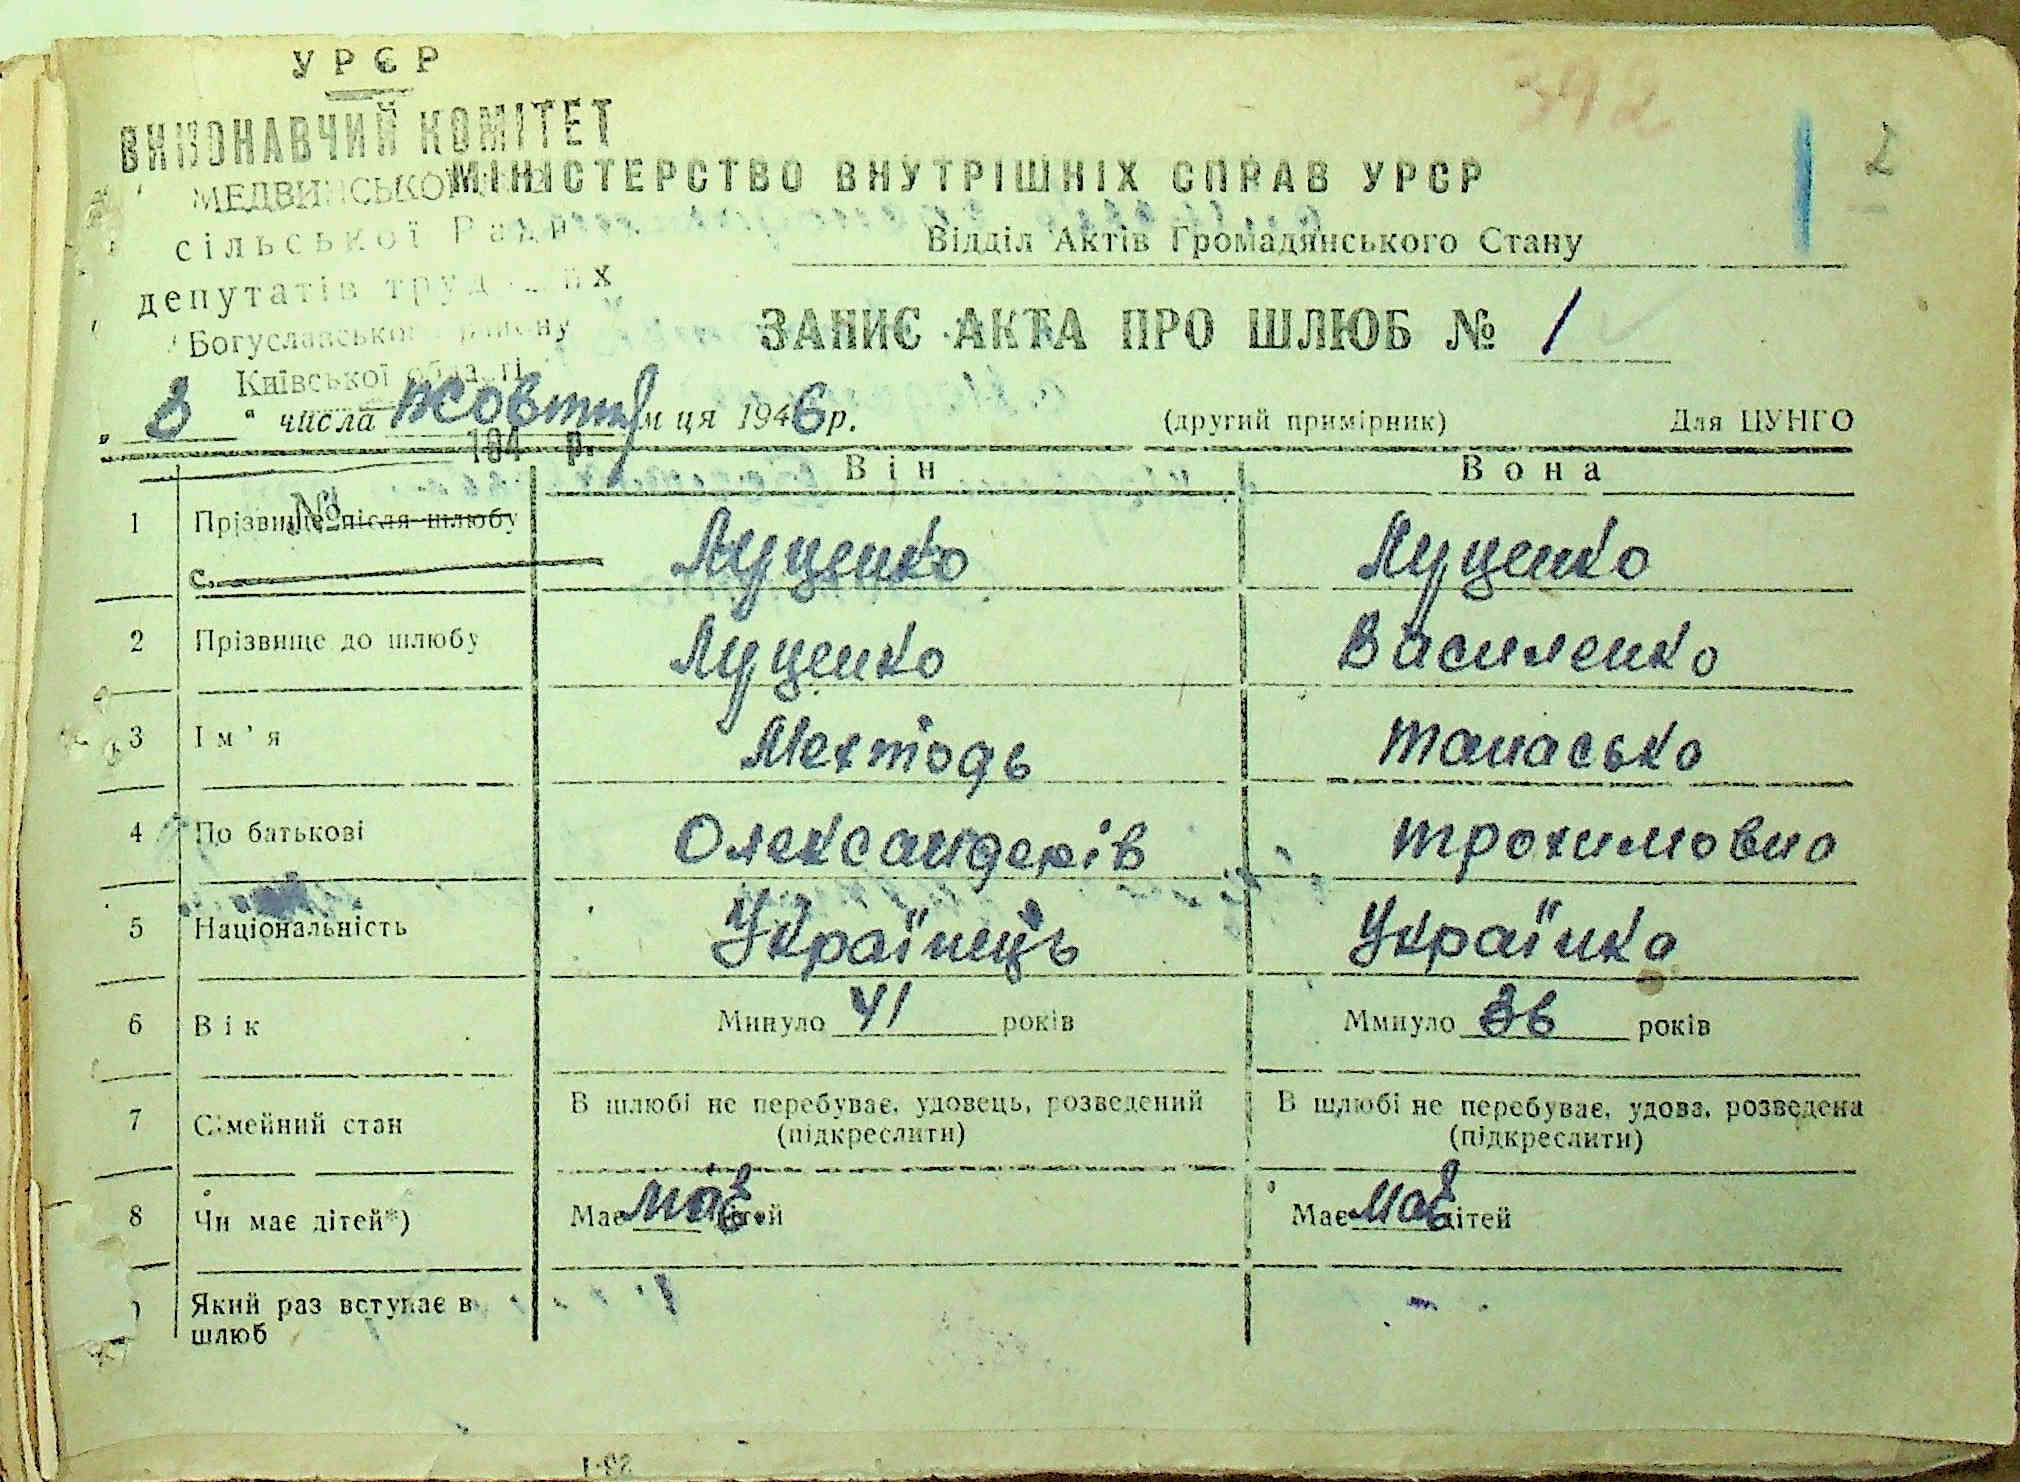 УРСР
ВИКОНАВЧИЙ КОМІТЕТ
МЕДВИНСЬКОЇ
сільської Ради
депутатів трудящих
Богуславського району
Київської області
194 р.
№
с.
392
2
МІНІСТЕРСТВО ВНУТРІШНІХ СПРАВ УРСР
Відділ Актів Громадянського Стану
ЗАПИС АКТА ПРО ШЛЮБ № 1
„ 3 " числа жовтня м ця 1946 р. (другий примірник) Для ЦУНГО
Він Вона
1 Прізвище після шлюбу Луценко Луценко
2 Прізвище до шлюбу Луценко Василенко
3 Ім'я Мехтодь танаська
4 По батькові Олександерів трохимовна
5 Національність Українець Українка
6 Вік Минуло 41 років Ммнуло 36 років
7 Сімейний стан В шлюбі не перебуває, удовець, розведений (підкреслити) В шлюбі не перебуває, удова, розведена (підкреслити)
8 Чи має дітей*) Має має дітей Має має дітей
Який раз вступає в
шлюб